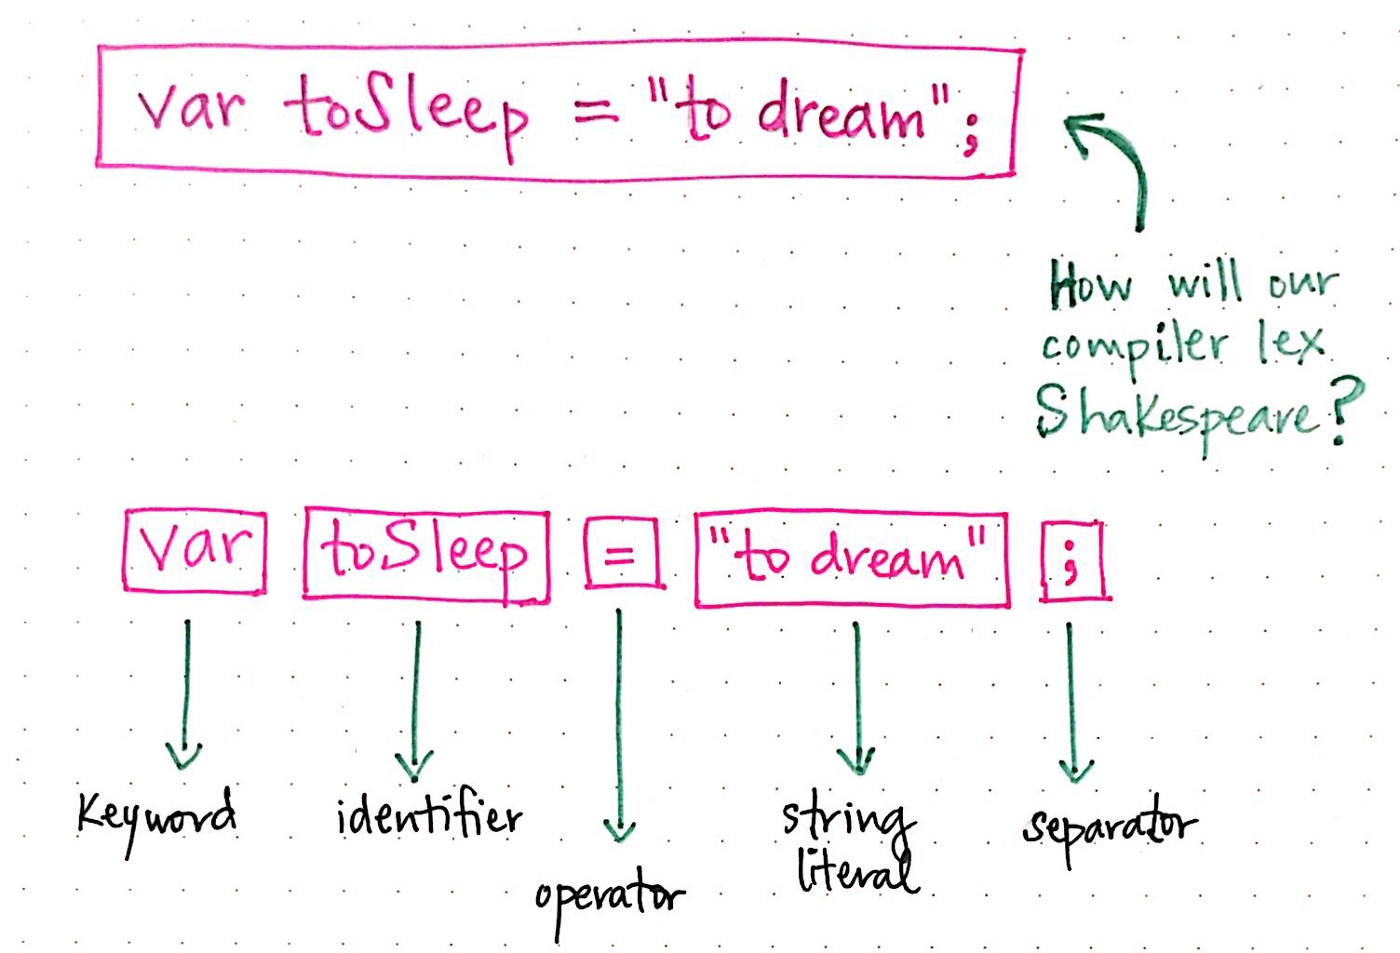 var toSleep = "to dream";
How will our
compiler lex
Shakespeare?
var toSleep = "to dream" ;
Keyword identifier operator string literal separator